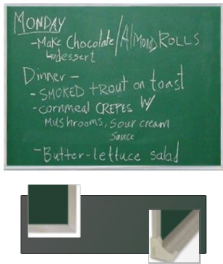 MONDAY
-Make Chocolate/AlMond ROLLS
for dessert
Dinner -
- SMOKED tROUT on toast
- cornmeal CREPES W/
Mushrooms, Sour cream
Sauce
- Butter-lettuce salad